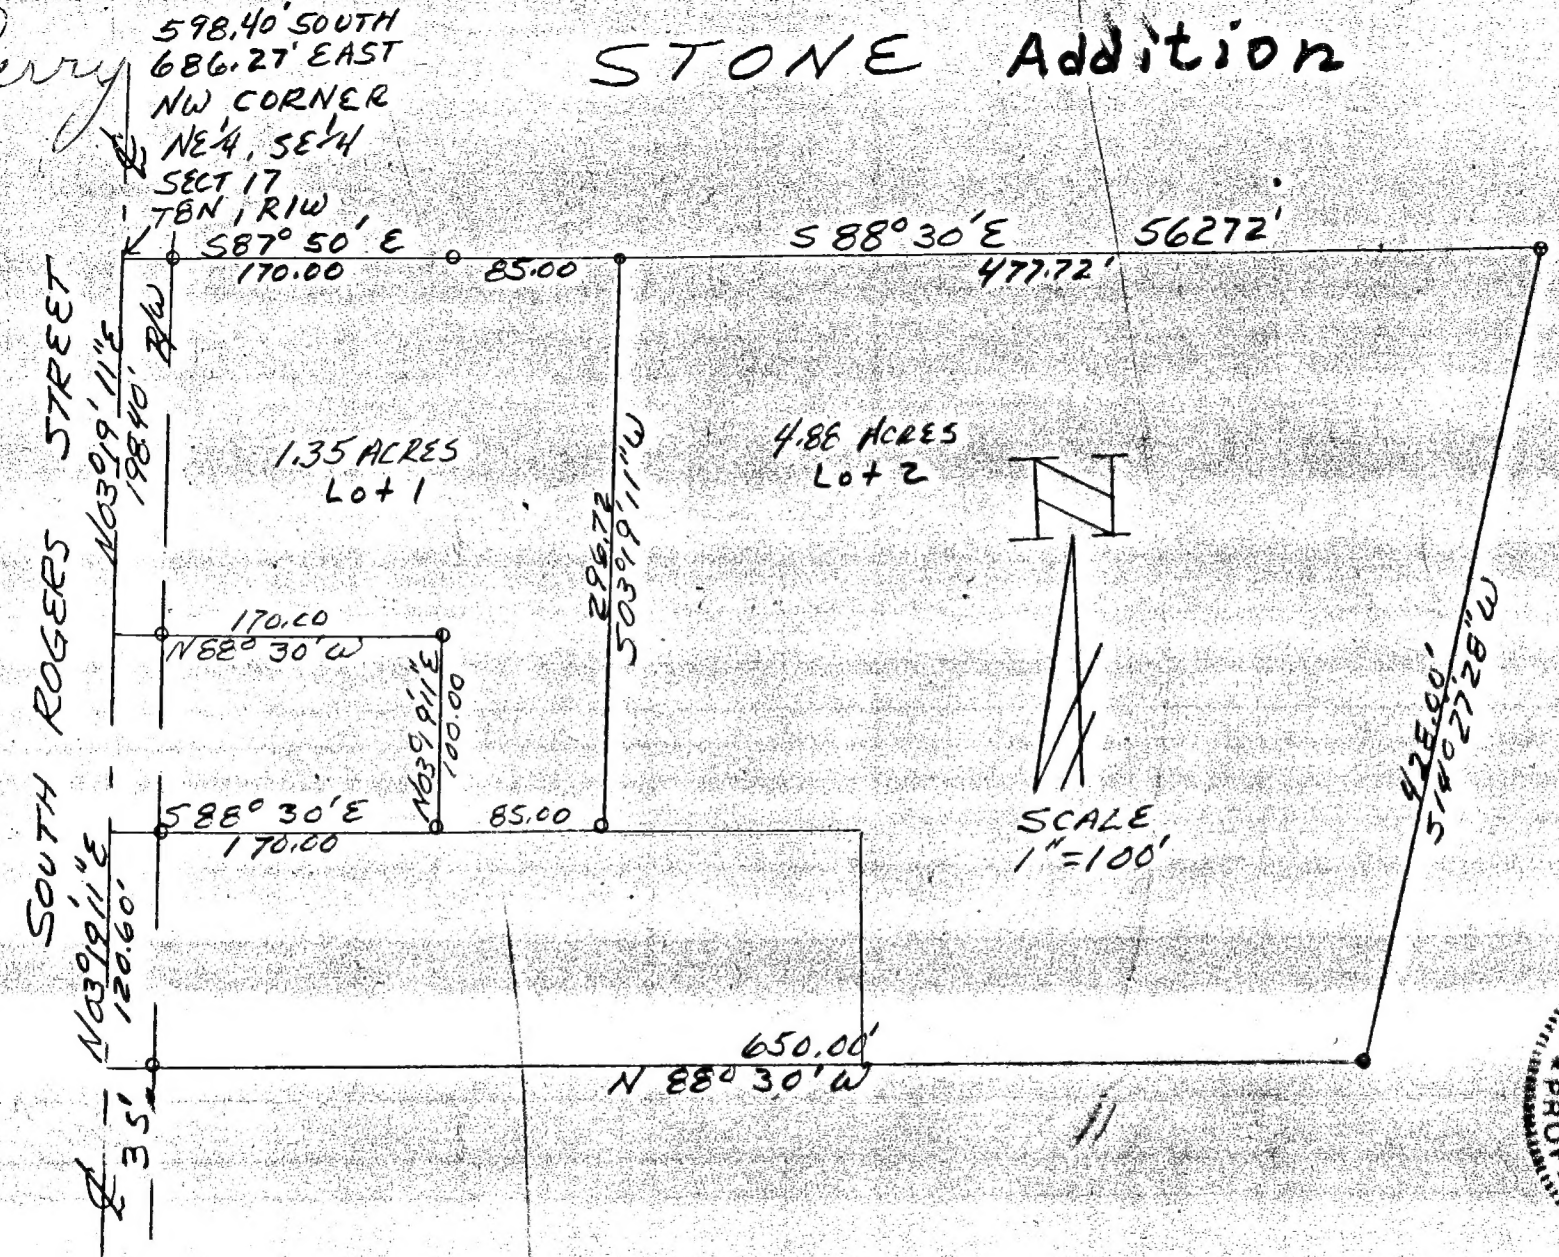 erry
598.40' SOUTH
686.27' EAST
NW CORNER
NE 1/4, SE 1/4
SECT 17
T8N, R1W
STONE Addition
℄
S 87° 50' E
170.00
85.00
S 88° 30' E 56272'
477.72'
SOUTH ROGERS STREET
N03° 19' 11" E
198.40'
R/W
1.35 ACRES
Lot 1
4.88 ACRES
Lot 2
296.72
S03° 19' 11" W
N
170.00
N 88° 30' W
N03° 19' 11" E
100.00
428.00'
S 14° 27' 28" W
SCALE
1" = 100'
S 88° 30' E
170.00
85.00
N03° 19' 11" E
120.60'
650.00'
N 88° 30' W
℄
35'